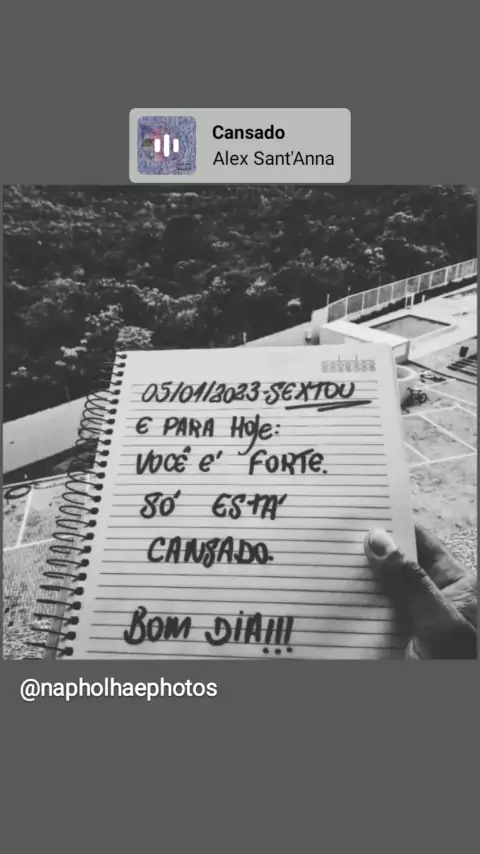 Cansado
Alex Sant'Anna
05/01/2023-SEXTOU
E PARA HOJE:
VOCÊ É FORTE.
SÓ ESTÁ
CANSADO.
BOM DIA!!!
@napholhaephotos